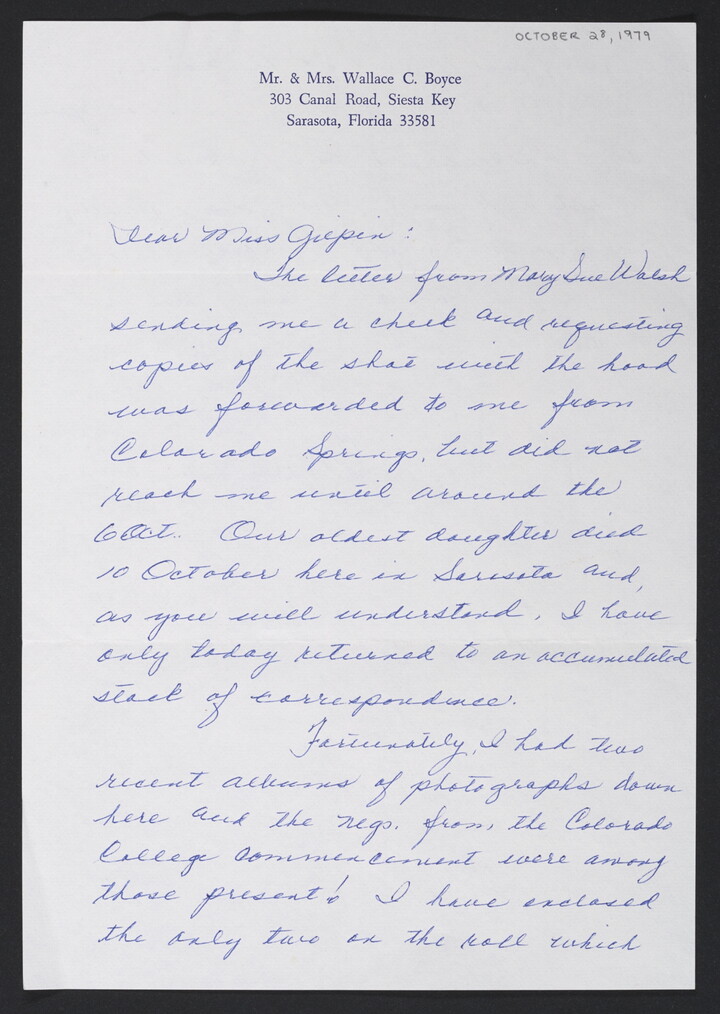 OCTOBER 28, 1979
Mr. & Mrs. Wallace C. Boyce
303 Canal Road, Siesta Key
Sarasota, Florida 33581
Dear Miss Gilpin:
The letter from Mary Sue Walsh
sending me a check and requesting
copies of the shot with the hood
was forwarded to me from
Colorado Springs, but did not
reach me until around the
6 Oct.. Our oldest daughter died
10 October here in Sarasota and,
as you will understand, I have
only today returned to an accumulated
stack of correspondence.
Fortunately, I had two
recent albums of photographs down
here and the negs. from the Colorado
College commencement were among
those present! I have enclosed
the only two on the roll which